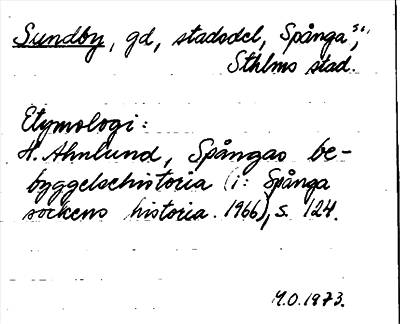 Sundby, gd, stadsdel, Spånga sn,
Sthlms stad.
Etymologi:
H. Ahnlund, Spångas be-
byggelsehistoria (i: Spånga
sockens historia. 1966), s. 124.
M.O. 1973.